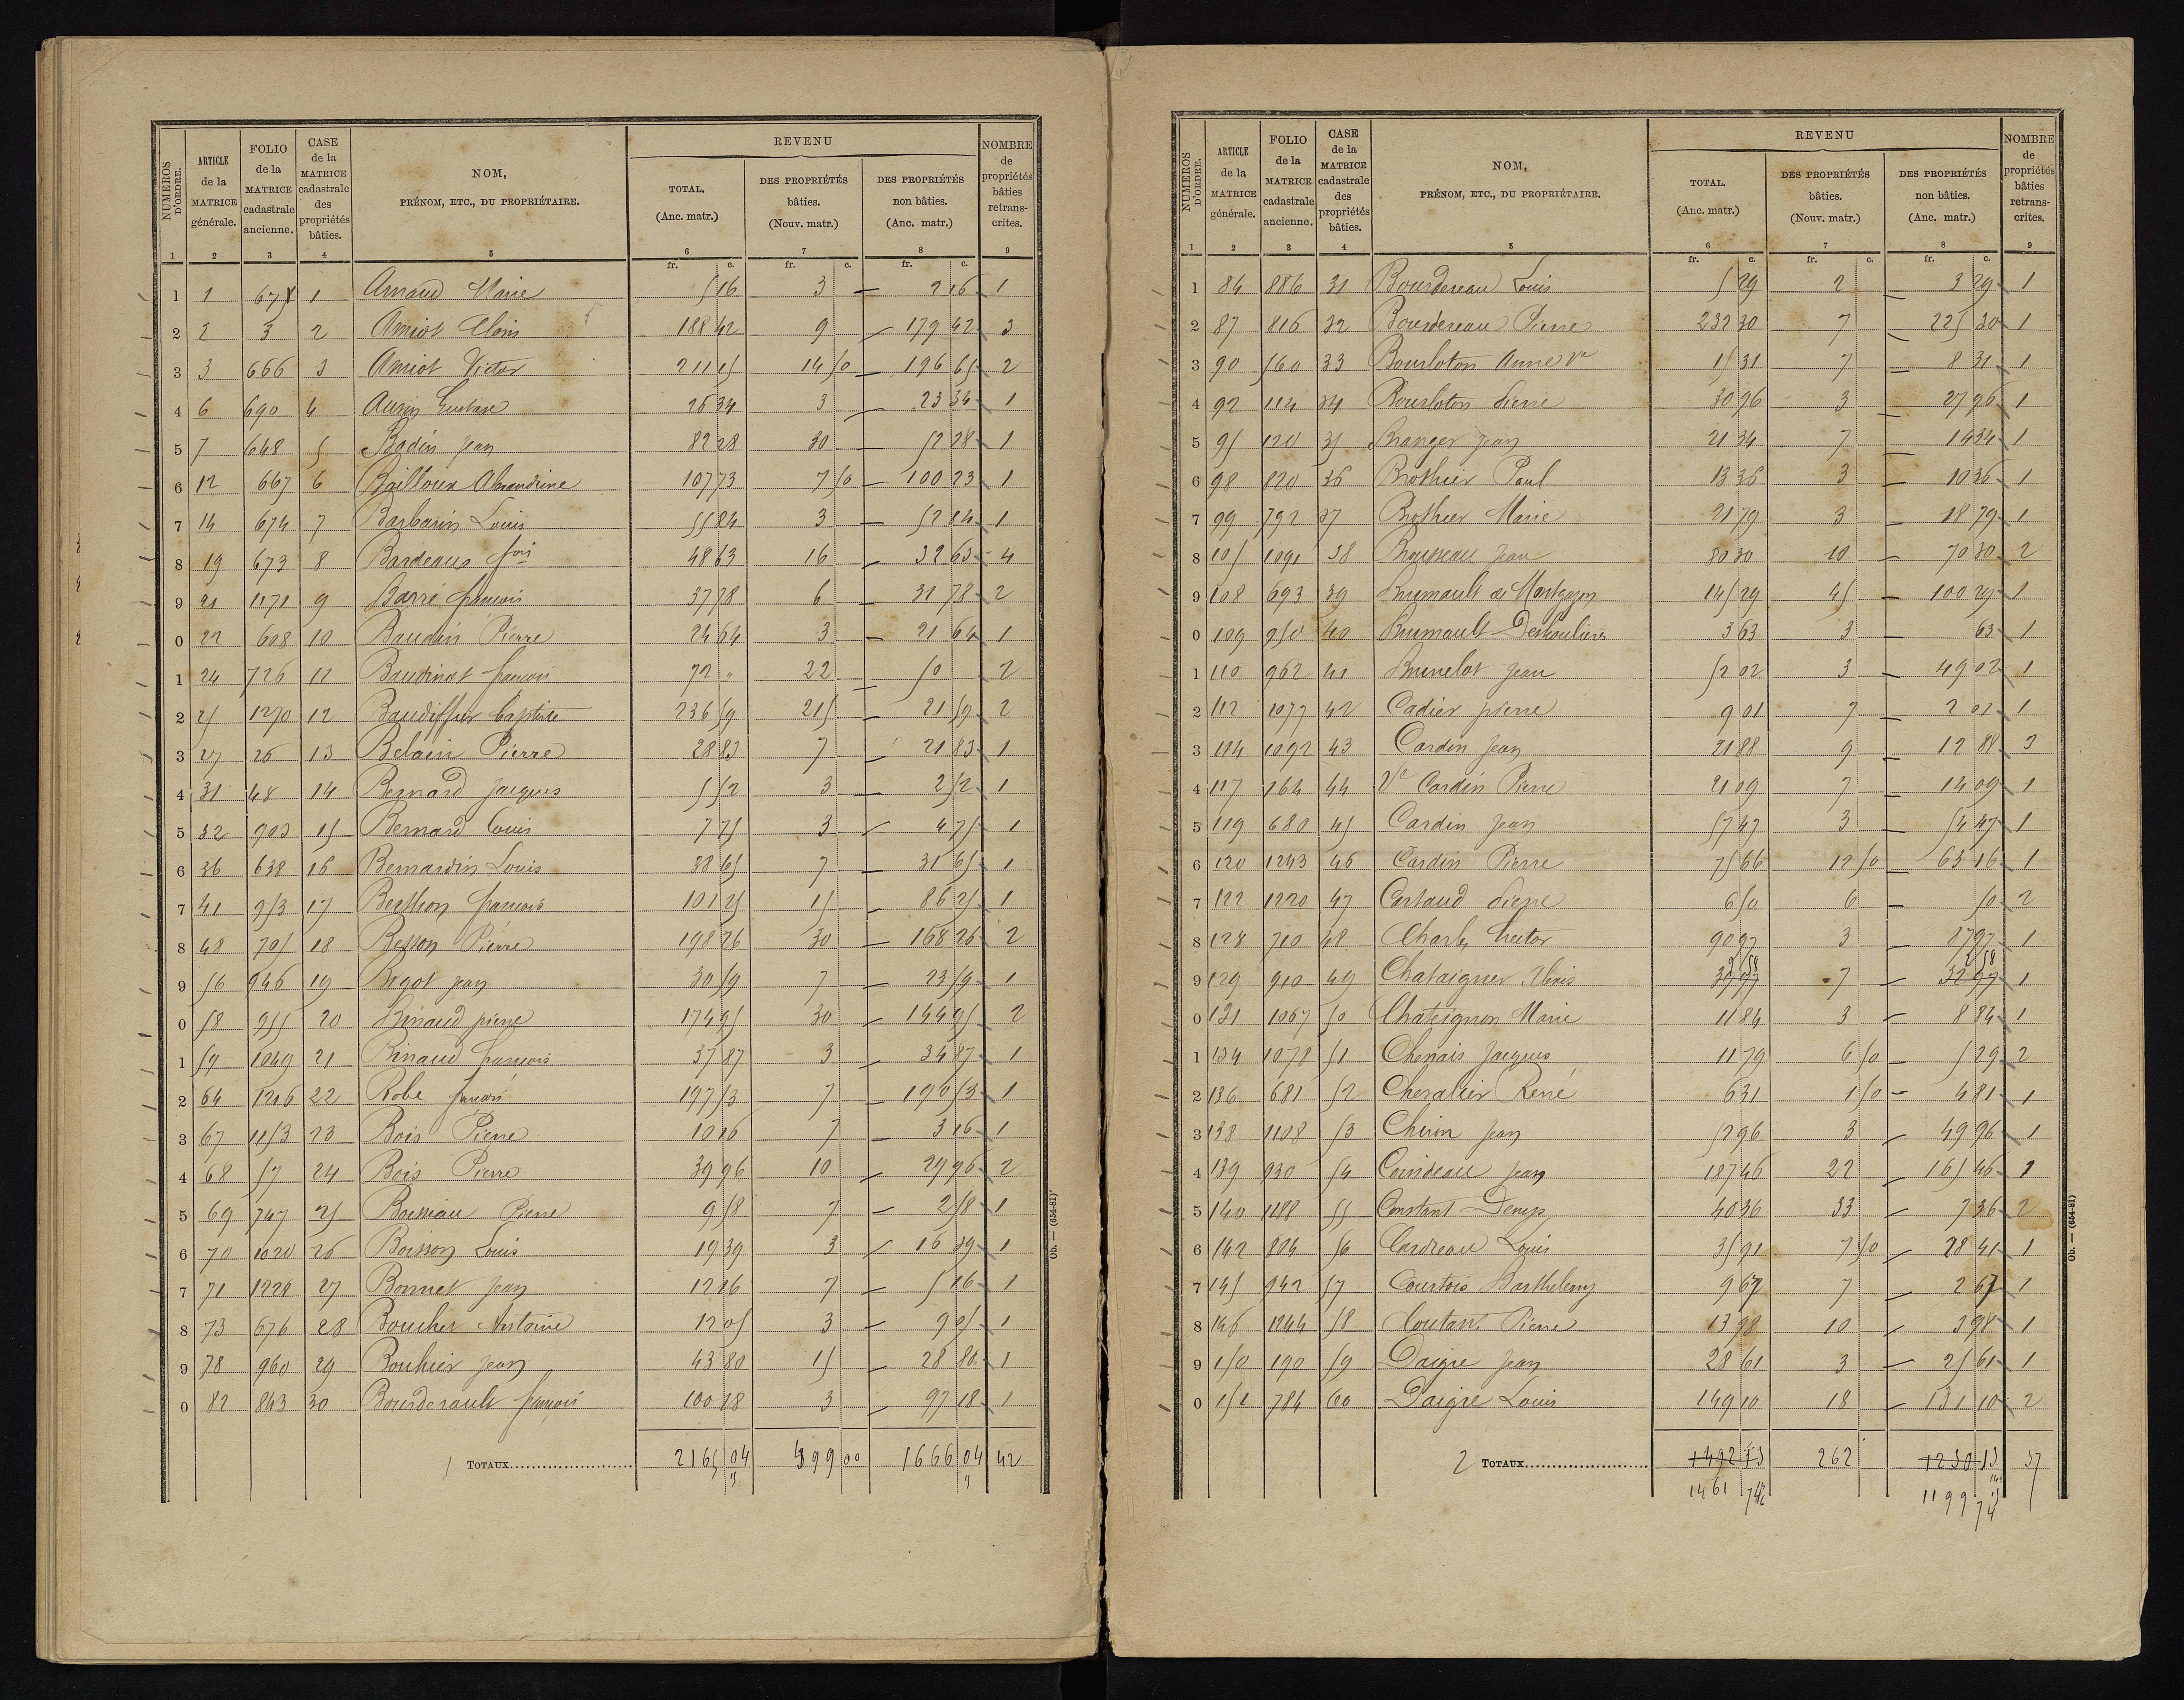 NUMÉROS D'ORDRE. | ARTICLE de la MATRICE générale. | FOLIO de la MATRICE cadastrale ancienne. | CASE de la MATRICE cadastrale des propriétés bâties. | NOM, PRÉNOM, ETC., DU PROPRIÉTAIRE. | REVENU TOTAL. (Anc. matr.) | DES PROPRIÉTÉS bâties. (Nouv. matr.) | DES PROPRIÉTÉS non bâties. (Anc. matr.) | NOMBRE de propriétés bâties retranscrites.
1 2 3 4 5 6 7 8 9
fr. c. fr. c. fr. c.
1 1 671 1 Arnaud Marie 5 16 3 — 2 16 1
2 2 3 2 Amiot Cloris 188 42 9 — 179 42 3
3 3 666 3 Amiot Victor 211 15 14 50 — 196 65 2
4 6 690 4 Aurin Gustave 26 34 3 — 23 34 1
5 7 648 5 Badin Jean 82 28 30 — 52 28 1
6 12 667 6 Bailloux Alexandrine 107 73 7 50 — 100 23 1
7 14 674 7 Barbarin Louis 55 84 3 — 52 84 1
8 19 673 8 Bardeaux fois 48 63 16 — 32 63 4
9 21 1171 9 Barré françois 37 78 6 — 31 78 2
0 22 608 10 Baudin Pierre 24 64 3 — 21 64 1
1 24 726 11 Baudinot françois 72 " 22 — 50 2
2 25 1270 12 Baudiffier baptiste 236 59 215 — 21 59 2
3 27 26 13 Belain Pierre 28 83 7 21 83 1
4 31 48 14 Bernard Jacques 5 52 3 — 2 52 1
5 32 903 15 Bernard Louis 7 75 3 — 4 75 1
6 36 638 16 Bernardin Louis 38 65 7 — 31 65 1
7 41 953 17 Berthon françois 101 25 15 — 86 25 1
8 48 705 18 Besson Pierre 198 26 30 — 168 26 2
9 56 946 19 Bigot Jean 30 59 7 — 23 59 1
0 58 955 20 Binaud pierre 174 95 30 — 144 95 2
1 59 1049 21 Binaud françois 37 87 3 — 34 87 1
2 64 1216 22 Bobe françois 197 53 7 — 190 53 1
3 67 1153 23 Bois Pierre 10 16 7 — 3 16 1
4 68 57 24 Bois Pierre 39 96 10 — 29 96 2
5 69 747 25 Boisseau Pierre 9 58 7 — 2 58 1
6 70 1020 26 Boisson Louis 19 39 3 — 16 39 1
7 71 1228 27 Bonnet Jean 12 16 7 — 5 16 1
8 73 676 28 Boucher Antoine 12 05 3 — 9 05 1
9 78 960 29 Bouhier Jean 43 80 15 — 28 80 1
0 82 843 30 Bourderault françois 100 18 3 — 97 18 1
1 TOTAUX 2165 04 499 00 1666 04 42
Ob. — (654-81)
NUMÉROS D'ORDRE. | ARTICLE de la MATRICE générale. | FOLIO de la MATRICE cadastrale ancienne. | CASE de la MATRICE cadastrale des propriétés bâties. | NOM, PRÉNOM, ETC., DU PROPRIÉTAIRE. | REVENU TOTAL. (Anc. matr.) | DES PROPRIÉTÉS bâties. (Nouv. matr.) | DES PROPRIÉTÉS non bâties. (Anc. matr.) | NOMBRE de propriétés bâties retranscrites.
1 2 3 4 5 6 7 8 9
fr. c. fr. c. fr. c.
1 84 886 31 Bourdereau Louis 5 29 2 — 3 29 1
2 87 816 32 Bourdereau Pierre 232 30 7 — 225 30 1
3 90 560 33 Bourloton Anne Ve 15 31 7 — 8 31 1
4 92 114 34 Bourloton Pierre 30 96 3 — 27 96 1
5 95 120 35 Branger Jean 21 34 7 14 34 1
6 98 820 36 Brothier Paul 13 36 3 — 10 36 1
7 99 792 37 Brothier Marie 21 79 3 — 18 79 1
8 105 1091 38 Brousseau Jean 80 30 10 — 70 30 2
9 108 693 39 Brumault de Montgazon 145 29 45 — 100 29 1
0 109 950 40 Brumault Deshoulières 3 63 3 — 63 1
1 110 962 41 Brunelot Jean 52 02 3 — 49 02 1
2 112 1077 42 Cadier pierre 9 01 7 — 2 01 1
3 114 1092 43 Cardin Jean 21 88 9 — 12 88 3
4 117 164 44 Ve Cardin Pierre 21 09 7 — 14 09 1
5 119 680 45 Cardin Jean 57 47 3 — 54 47 1
6 120 1243 46 Cardin Pierre 75 66 12 50 — 63 16 1
7 122 1220 47 Cartaud Pierre 6 50 6 — 50 2
8 128 710 48 Charles hector 90 97 3 — 87 97 1
9 129 910 49 Chataigner Alexis 39 97 7 — 32 97 1
0 131 1067 50 Chateignon Marie 11 84 3 — 8 84 1
1 134 1078 51 Chenais Jacques 11 79 6 50 — 5 29 2
2 136 681 52 Chevalier René 6 31 1 50 — 4 81 1
3 138 1108 53 Chiron Jean 52 96 3 — 49 96 1
4 139 930 54 Coindeau Jean 187 46 22 — 165 46 1
5 140 1188 55 Constant Denys 40 36 33 — 7 36 2
6 142 804 56 Cordreau Louis 35 91 7 50 — 28 41 1
7 145 942 57 Courtois Barthélemy 9 67 7 — 2 67 1
8 146 1244 58 Coutant Pierre 13 98 10 — 3 98 1
9 150 190 59 Daigre Jean 28 61 3 — 25 61 1
0 151 784 60 Daigre Louis 149 10 18 — 131 10 2
2 TOTAUX 1492 13 262 1230 13 37
1461 74 1199 74
Ob. — (654-81)